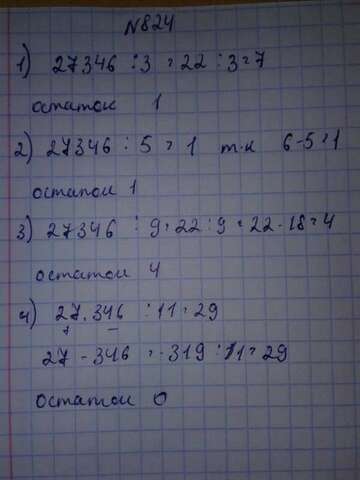 №824
1) 27346 : 3 = 22 : 3 = 7
остаток 1
2) 27346 : 5 = 1 т.к 6-5=1
остаток 1
3) 27346 : 9 = 22 : 9 = 22-18=4
остаток 4
4) 27.346 : 11 = 29
+ -
27 - 346 = -319 : 11 = 29
остаток 0